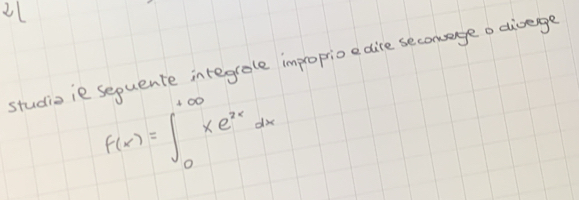 2)
studia il seguente integrale improprio e dire se converge o diverge
f(x) = ∫₀^{+∞} x e^{2x} dx